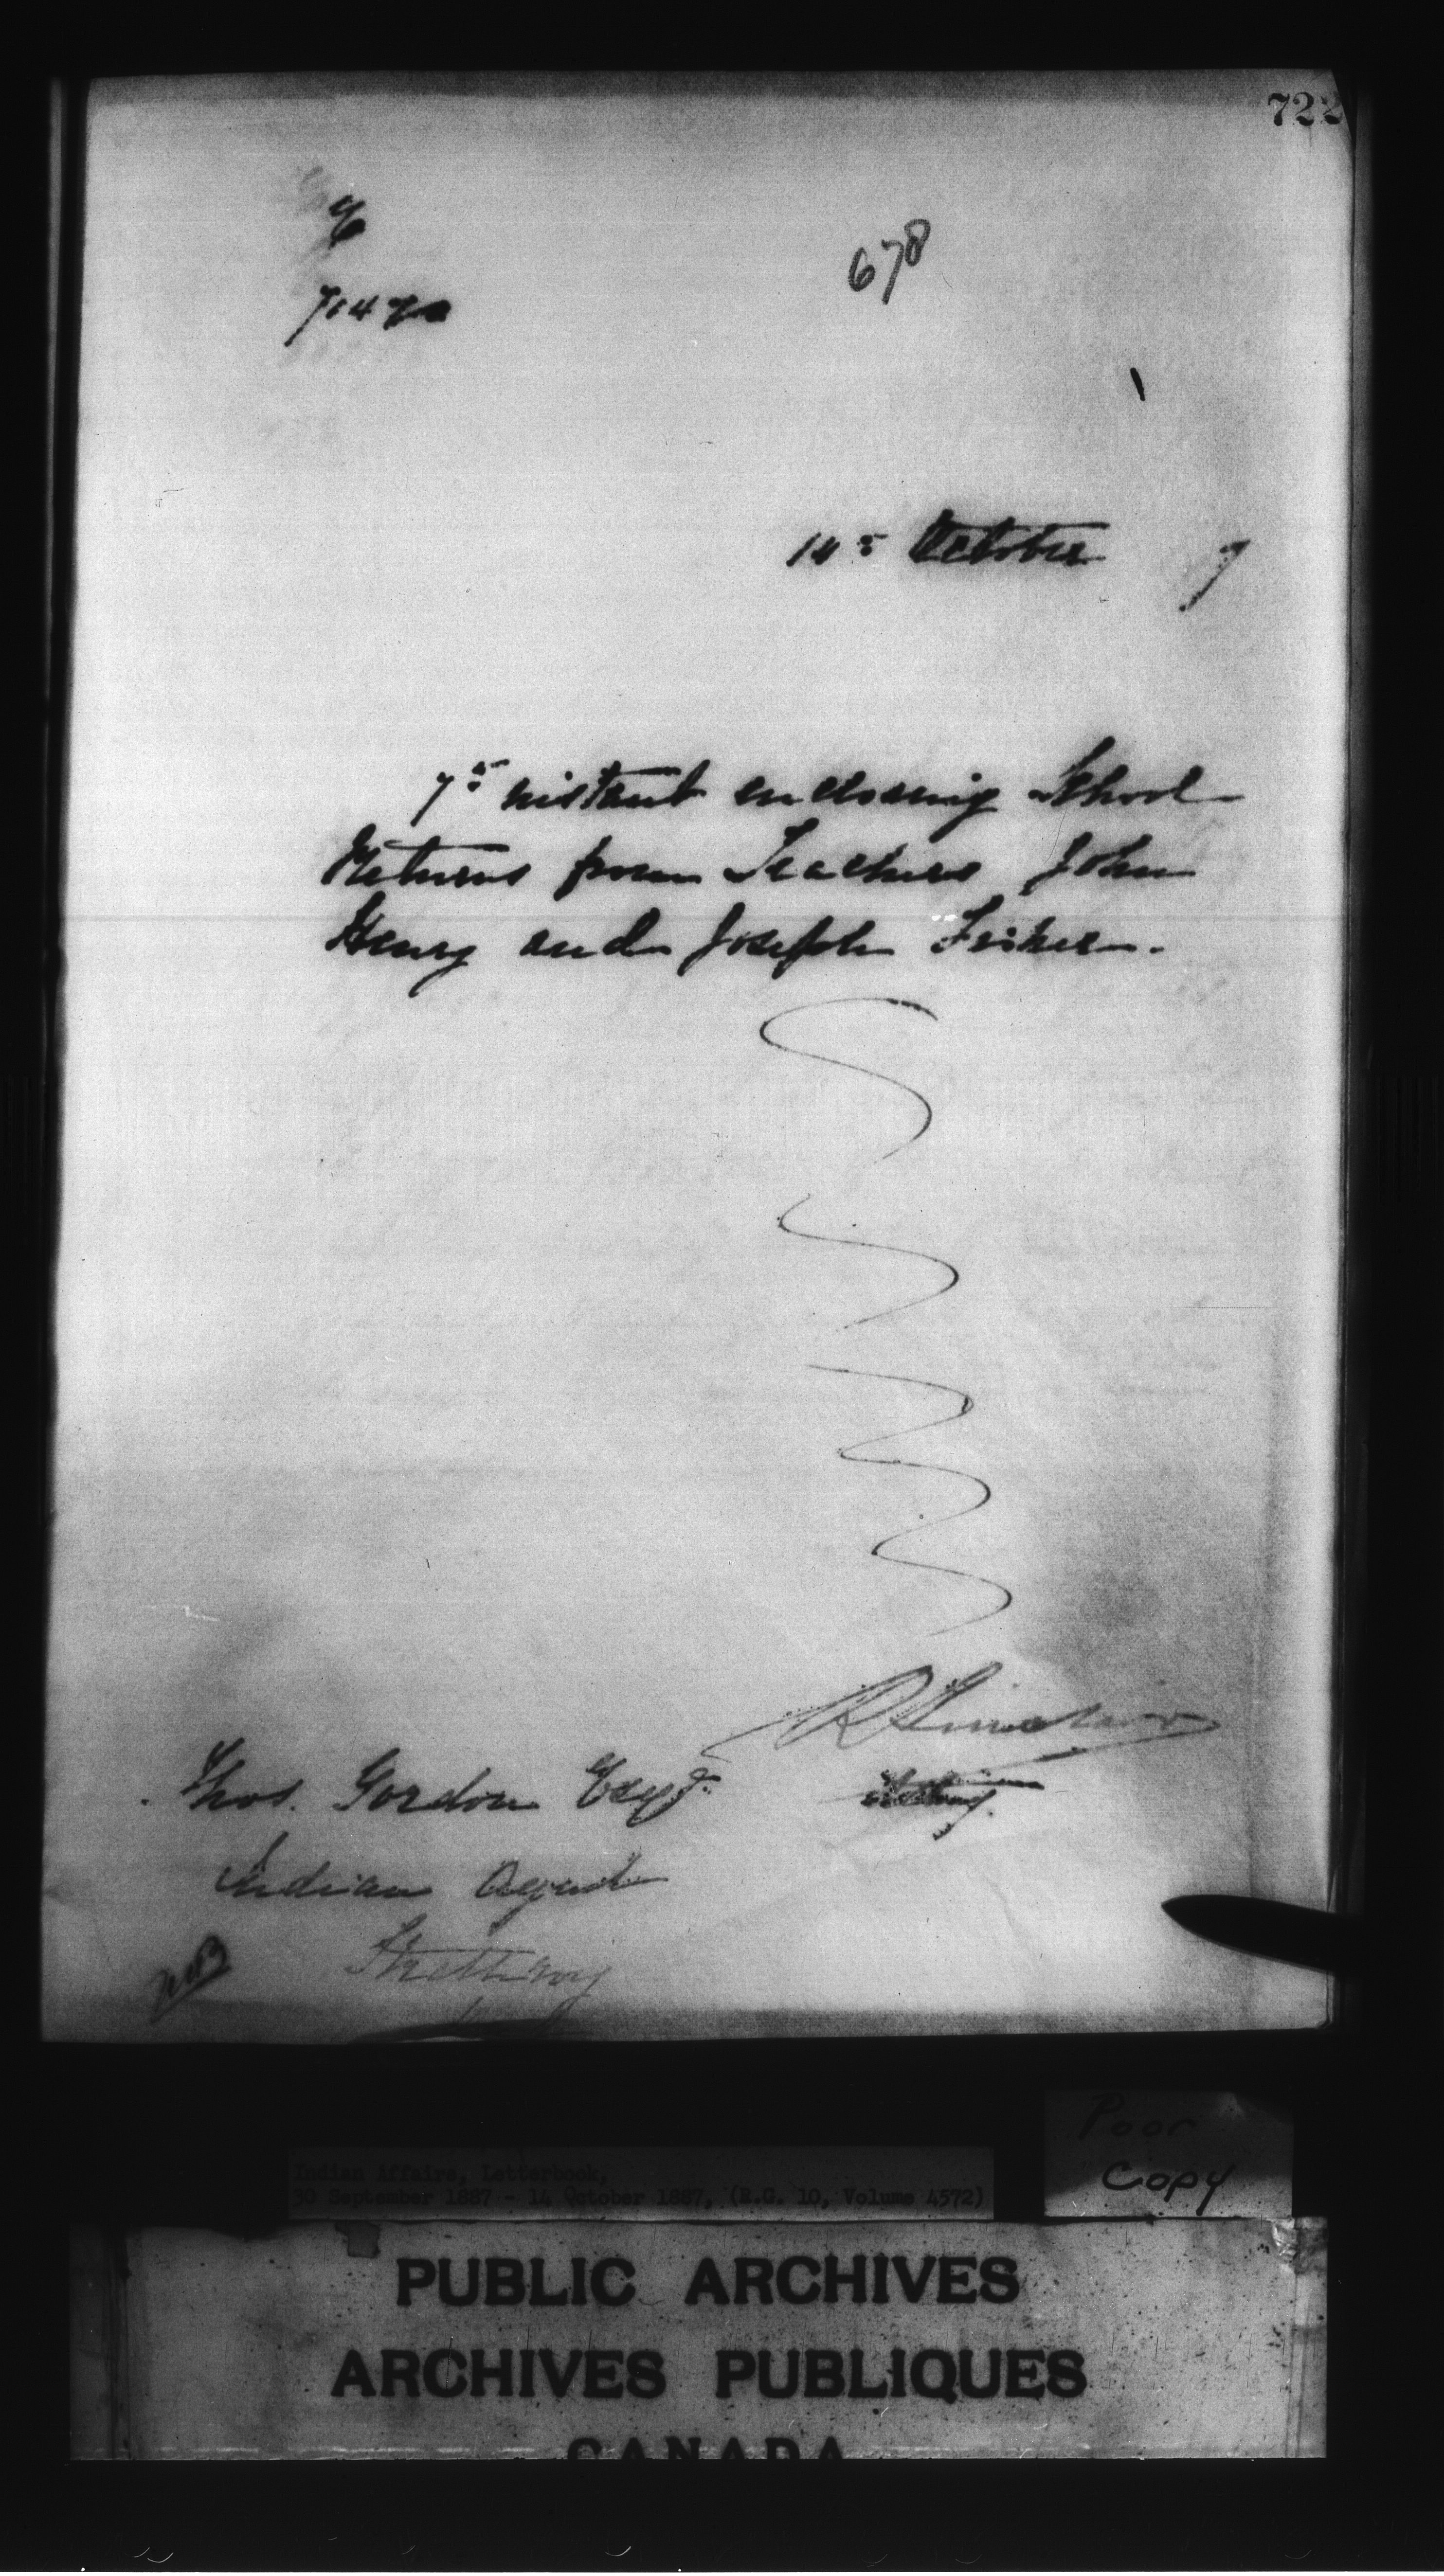 722
678
14th October 7
7th instant enclosing School
Returns from Teachers John
Henry and Joseph Fisher.
R Sinclair
Thos. Gordon Esqr.
Acting
Indian Agent
Strathroy
Poor
Copy
Indian Affairs, Letterbook,
30 September 1887 - 14 October 1887, (R.G. 10, Volume 4572)
PUBLIC ARCHIVES
ARCHIVES PUBLIQUES
CANADA